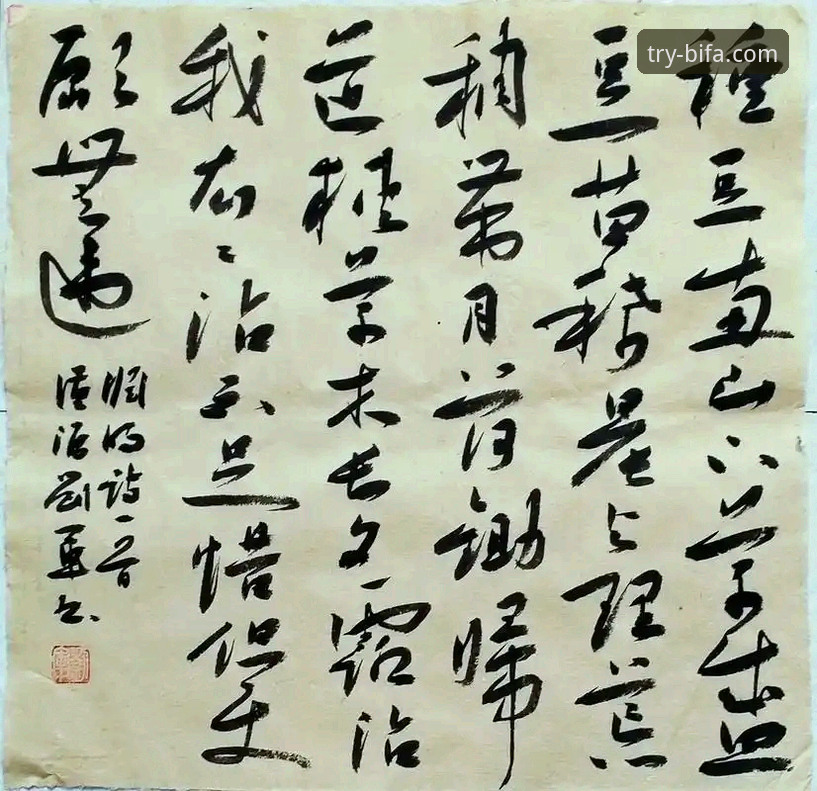 種豆南山下草盛
豆苗稀晨興理荒
穢帶月荷鋤歸
道狹草木長夕露沾
我衣〻沾不足惜但使
願無違
淵明詩一首
劉軍书
try-bifa.com